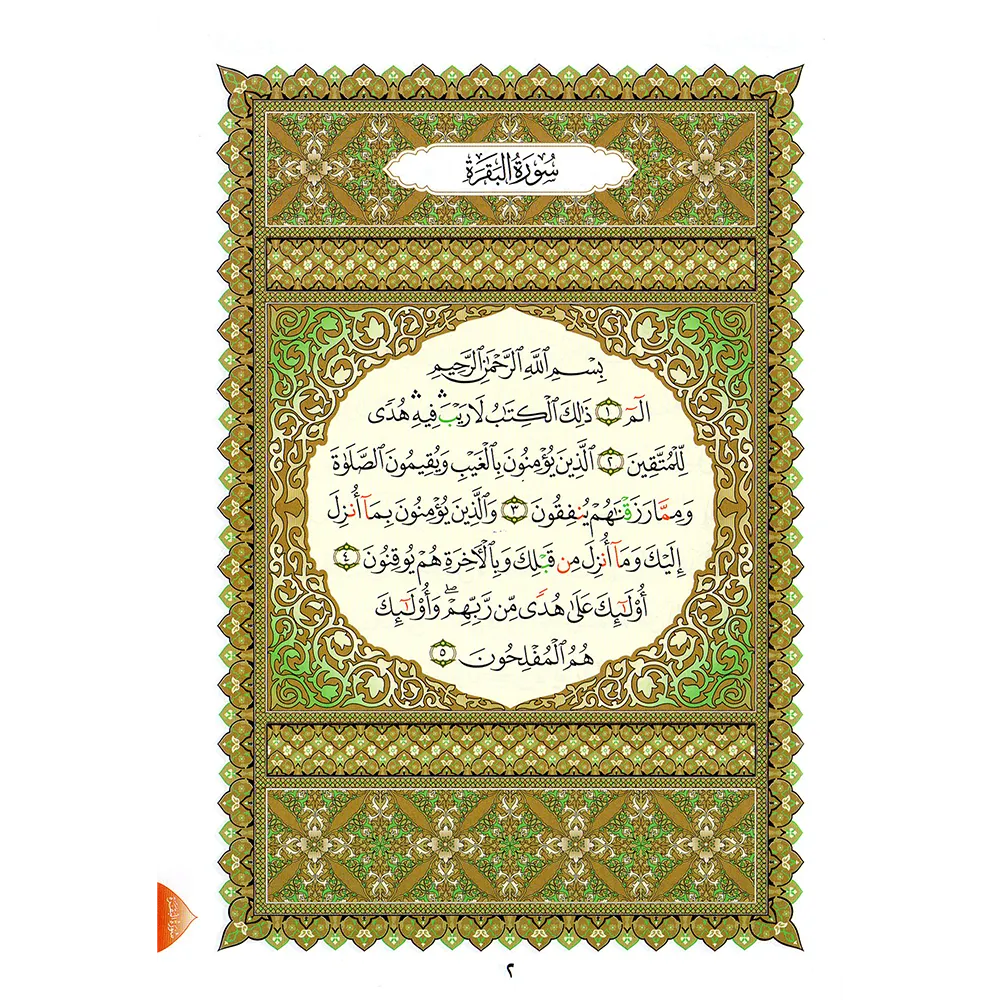 سُورَةُ الْبَقَرَةِ
بِسْمِ ٱللَّهِ ٱلرَّحْمَٰنِ ٱلرَّحِيمِ
الٓمٓ ١ ذَٰلِكَ ٱلْكِتَٰبُ لَا رَيْبَ ۛ فِيهِ ۛ هُدًى
لِّلْمُتَّقِينَ ٢ ٱلَّذِينَ يُؤْمِنُونَ بِٱلْغَيْبِ وَيُقِيمُونَ ٱلصَّلَوٰةَ
وَمِمَّا رَزَقْنَٰهُمْ يُنفِقُونَ ٣ وَٱلَّذِينَ يُؤْمِنُونَ بِمَآ أُنزِلَ
إِلَيْكَ وَمَآ أُنزِلَ مِن قَبْلِكَ وَبِٱلْأَخِرَةِ هُمْ يُوقِنُونَ ٤
أُو۟لَٰٓئِكَ عَلَىٰ هُدًى مِّن رَّبِّهِمْ ۖ وَأُو۟لَٰٓئِكَ
هُمُ ٱلْمُفْلِحُونَ ٥
سُورَةُ البَقَرَة
٢